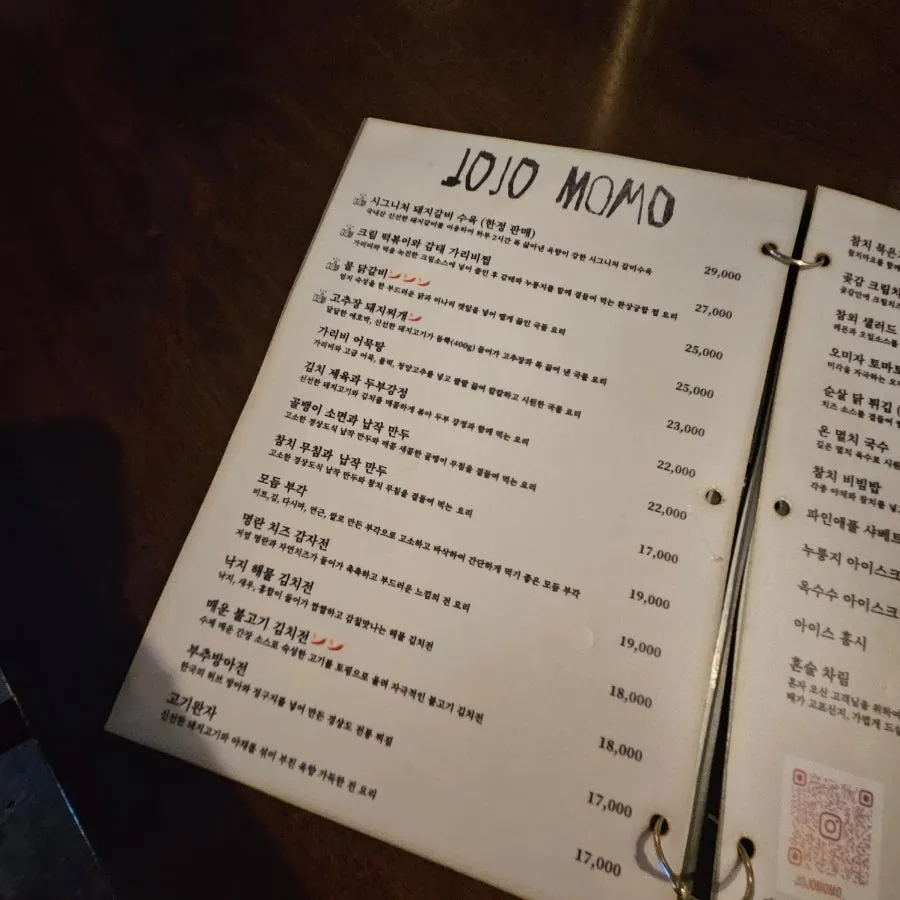 JOJO MOMO
시그니처 돼지갈비 수육 (한정 판매)
국내산 신선한 돼지갈비를 이용하여 하루 2시간 푹 삶아낸 육향이 강한 시그니처 갈비수육
29,000
크림 떡볶이와 감태 가리비찜
가리비와 떡을 녹진한 크림소스에 넣어 졸인 후 감태와 누룽지를 함께 곁들여 먹는 환상궁합 찜 요리
27,000
물 닭갈비
엄지 숙성을 한 부드러운 닭과 미나리 깻잎을 넣어 맵게 끓인 국물 요리
25,000
고추장 돼지찌개
달달한 애호박, 신선한 돼지고기가 듬뿍(400g) 들어가 고추장과 푹 끓여 낸 국물 요리
25,000
가리비 어묵탕
가리비와 고급 어묵, 물떡, 청양고추를 넣고 팔팔 끓여 칼칼하고 시원한 국물 요리
23,000
김치 제육과 두부강정
신선한 돼지고기와 김치를 매콤하게 볶아 두부 강정과 함께 먹는 요리
22,000
골뱅이 소면과 납작 만두
고소한 경상도식 납작 만두와 매콤 새콤한 골뱅이 무침을 곁들여 먹는 요리
22,000
참치 무침과 납작 만두
고소한 경상도식 납작 만두와 참치 무침을 곁들여 먹는 요리
17,000
모듬 부각
비트,김, 다시마, 연근, 쌀로 만든 부각으로 고소하고 바삭하여 간단하게 먹기 좋은 모듬 부각
19,000
명란 치즈 감자전
저염 명란과 자연치즈가 들어가 촉촉하고 부드러운 느낌의 전 요리
19,000
낙지 해물 김치전
낙지, 새우, 홍합이 들어가 짭짤하고 감칠맛나는 해물 김치전
18,000
매운 불고기 김치전
수제 매운 간장 소스로 숙성한 고기를 토핑으로 올려 자극적인 불고기 김치전
18,000
부추방아전
한국의 허브 방아와 정구지를 넣어 만든 경상도 전통 찌짐
17,000
고기완자
신선한 돼지고기와 야채를 섞어 부친 육향 가득한 전 요리
17,000
참치 묵은
참치마요를 함께
곶감 크림치
곶감안에 크림치
참외 샐러드
레몬과 오일소스를
오미자 토마토
미각을 자극하는
순살 닭 튀김 (
치즈 소스를 곁들여
온 멸치 국수
깊은 멸치 육수로 시원
참치 비빔밥
각종 야채와 참치를 넣
파인애플 샤베트
누룽지 아이스크
옥수수 아이스크
아이스 홍시
혼술 차림
혼자 오신 고객님을 위하여
배가 고프신지, 가볍게 드실